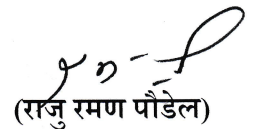 (राजु रमण पौडेल)